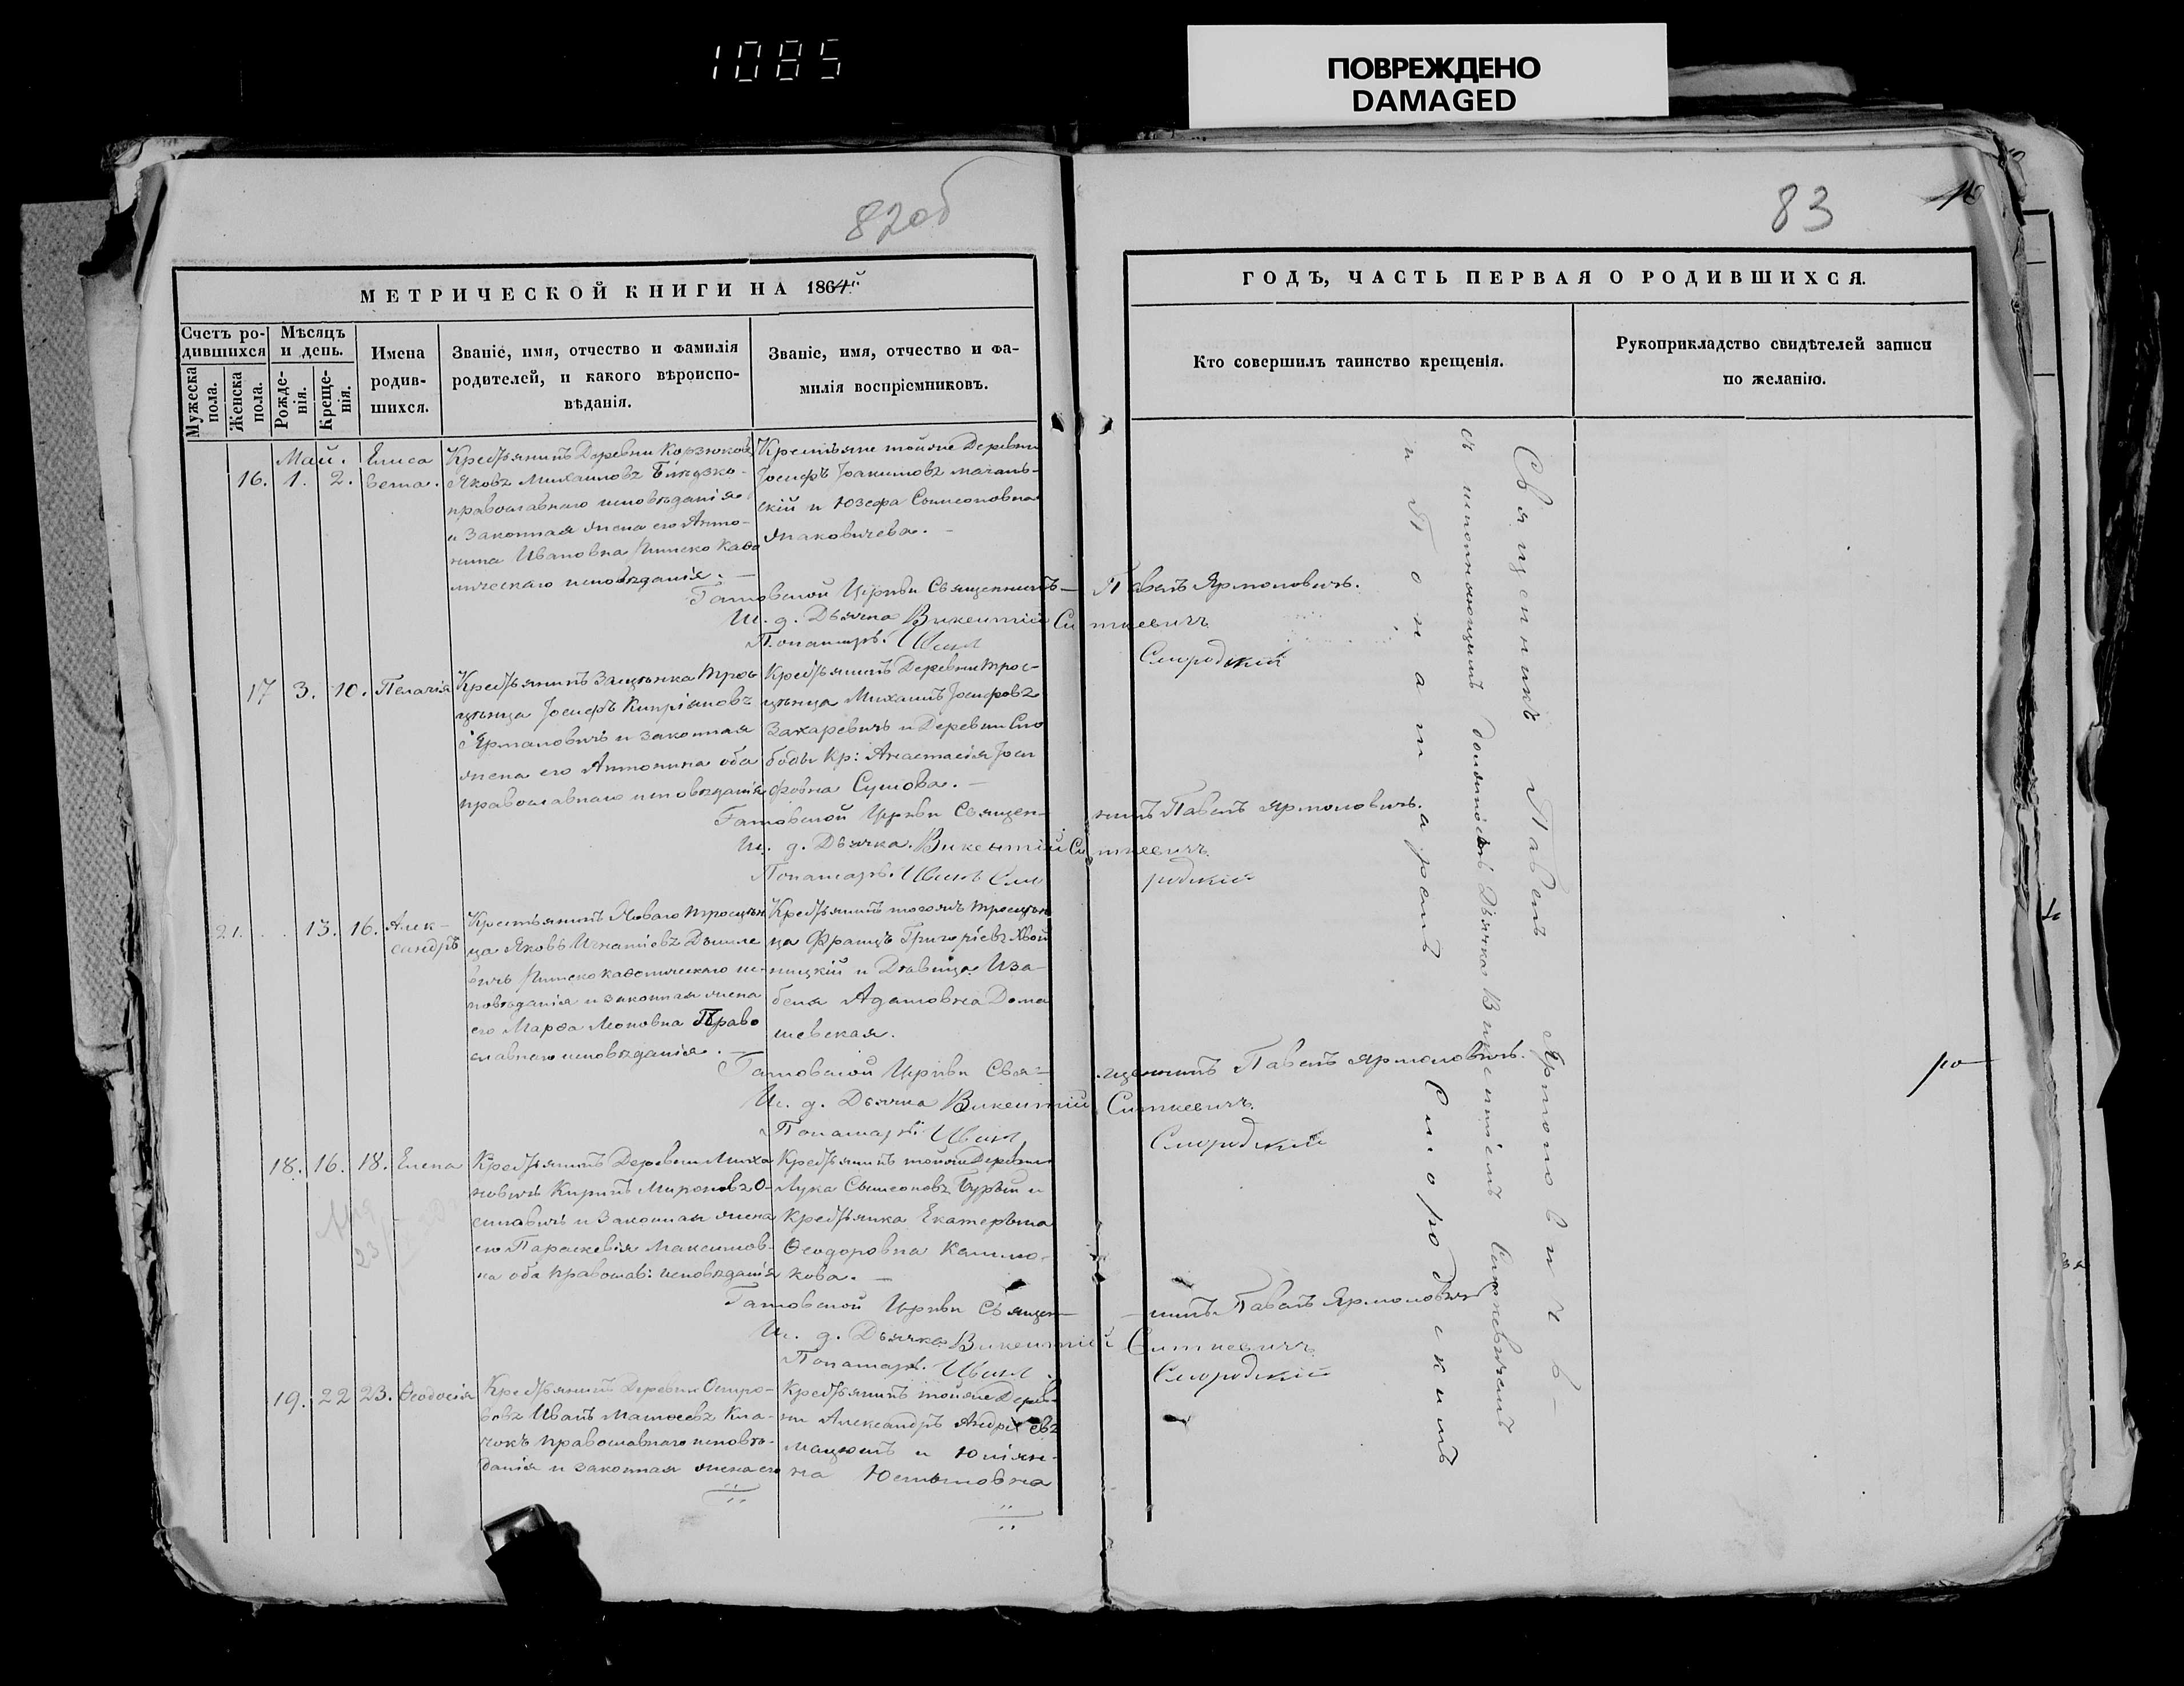 1085
ПОВРЕЖДЕНО
DAMAGED
82об
МЕТРИЧЕСКОЙ КНИГИ НА 1864й
Счетъ ро-
дившихся
Мужеска пола.
Женска пола.
Мѣсяцъ
и день.
Рожде-
нія.
Креще-
нія.
Имена
родив-
шихся.
Званіе, имя, отчество и фамилія
родителей, и какого вѣроиспо-
вѣданія.
Званіе, имя, отчество и фа-
милія воспріемниковъ.
Май.
16. 1. 2.
Елиса
вета.
Крестьянинъ Деревни Корзюковъ
Яковъ Михаиловъ
православнаго исповѣданія
и Законная жена его Анто-
нина Ивановна Римско Каѳо
лическаго исповѣданія. —
Крестьяне тойже Деревни
Іосифъ Іоакимовъ
скій и Юзефа Симеоновна
Маковичева. —
Гатовской Церкви Священникъ — Павелъ Ярмоловичъ.
И. д. Дьячка Викентій Ситкевичъ
Понамарь Иванъ Смородскій
17 3. 10. Пелагія
Крестьянинъ Застѣнка Трос
цѣнца Іосифъ Кипріяновъ
Ярмаловичъ и законная
жена его Антонина оба
православнаго исповѣданія
Крестьянинъ Деревни Трос-
цѣнца Михаилъ Іосифовъ
Захаревичъ и Деревни Сло
боды Кр: Анастасія Іоси
фовна Сушова. —
Гатовской Церкви Священ- никъ Павелъ Ярмоловичъ.
И. д. Дьячка Викентій Ситкевичъ
Понамарь Иванъ Смо родскій
21. . . 13. 16. Алек-
сандръ
Крестьянинъ Новаго Тросцѣн
ца Яковъ Игнатіевъ Даниле
вичъ Римско каѳолическаго ис-
повѣданія и законная жена
его Марѳа Леоновна Право
славнаго исповѣданія. —
Крестьянинъ тогожъ Тросцѣн
ца Францъ Григоріевъ Хвой
ницкій и Дѣвица Иза-
беля Адамовна Дома
шевская.
Гатовской Церкви Свя- щенникъ Павелъ Ярмоловичъ.
И. д. Дьячка Викентій Ситкевичъ.
Понамарь Иванъ Смородскій
18. 16. 18. Елена
Крестьянинъ Деревни Миха
новичъ Кирилъ Мироновъ О-
сиповичъ и Законная жена
его Параскевія Максимов-
на оба православ: исповѣданія
Крестьянинъ тойже Деревни
Лука Симеоновъ Бурый и
Крестьянка Екатерина
Ѳеодоровна Калино-
кова. —
Гатовской Церкви Священ- никъ Павелъ Ярмоловичъ
И. д. Дьячка Викентій Ситкевичъ
Понамарь. Иванъ Смородскій
19. 22 23. Ѳеодосія
Крестьянинъ Деревни Остро-
вовъ Иванъ Матѳеевъ Кла-
чокъ православнаго исповѣ-
данія и законная жена его
Крестьянинъ тойже Дерев-
ни Александръ Андреевъ
Мацкель и Юліян-
на Юстыновна
83
ГОДЪ, ЧАСТЬ ПЕРВАЯ О РОДИВШИХСЯ.
Кто совершилъ таинство крещенія.
Рукоприкладство свидѣтелей записи
по желанію.
Священникъ Павелъ Ярмоловичъ —
съ исполняющимъ должность Дьячка Викентіемъ Ситкевичемъ
и Понамаремъ Смородскимъ
ро